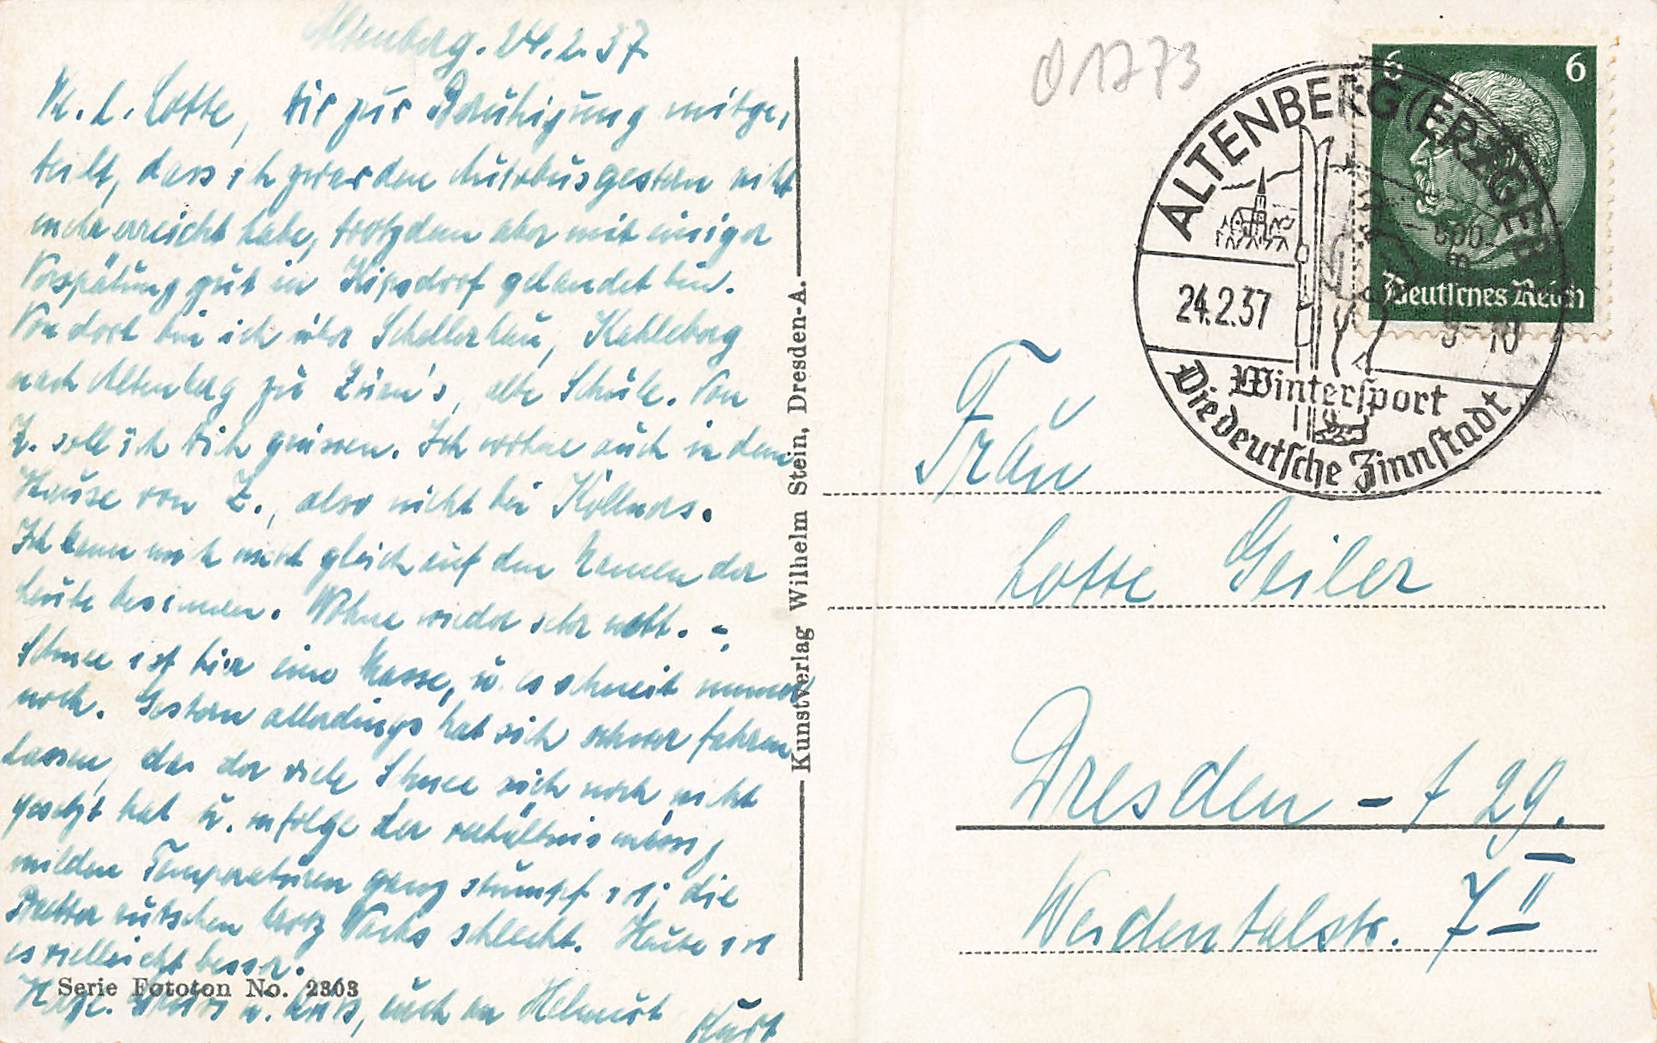 Altenberg. 24.2.37
M. l. Lotte, Dir zur Beruhigung mitge-
teilt, dass ich zwar den Autobus gestern nicht
mehr erreicht habe, trotzdem aber mit einiger
Verspätung gut in Kipsdorf gelandet bin.
Von dort bin ich über Schellerhau, Kahleberg
nach Altenberg zu Zürn's, alte Schule. Von
Z. soll ich Dich grüssen. Ich wohne auch in dem
Hause von Z., also nicht bei Köllners.
Ich kann mich nicht gleich auf den Namen der
Leute besinnen. Wohne wieder sehr nett. -
Schnee ist hier eine Masse, u. es schneit immer
noch. Gestern allerdings hat sich schwer fahren
lassen, da der viele Schnee sich noch nicht
gesetzt hat u. infolge der verhältnismässig
milden Temperaturen ganz stumpf ist; die
Bretter rutschen trotz Wachs schlecht. Heute ist
es vielleicht besser.
Herzl. Gruss u. Kuss, auch an Helmut Kurt
Serie Fototon No. 2303
Kunstverlag Wilhelm Stein, Dresden-A.
01773
6 6
Deutsches Reich
ALTENBERG (ERZGEB)
24.2.37
9-10
Wintersport
Die deutsche Zinnstadt
Frau
Lotte Geiler
Dresden - A 29.
Weidentalstr. 7 II